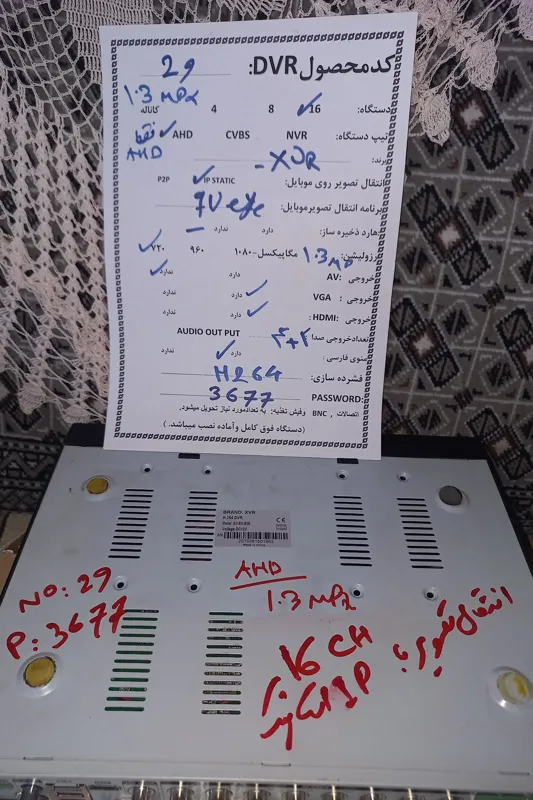 کدمحصولDVR: 29
1.3 MPx
دستگاه: 16 8 4 کاناله
تیپ دستگاه: NVR CVBS AHD فقط AHD
برند: XVR
انتقال تصویر روی موبایل: IP STATIC P2P
برنامه انتقال تصویرموبایل:
هارد ذخیره ساز: دارد ندارد
رزولیشن: 1.3 MP مگاپیکسل-۱۰۸۰ ۹۶۰ ۷۲۰
خروجی AV: دارد ندارد
خروجی : VGA دارد ندارد
خروجی :HDMI دارد ندارد
تعدادخروجی صدا ۴+۴ AUDIO OUT PUT
منوی فارسی: دارد ندارد
فشرده سازی: H264
PASSWORD: 3677
اتصالات , BNC وفیش تغذیه: به تعدادمورد نیاز تحویل میشود.
(دستگاه فوق کامل وآماده نصب میباشد. )
BRAND: XVR
H.264 DVR
Made in China
NO: 29
P: 3677
AHD
1.3 MPx
16 CH
انتقال تصویر با
IP استاتیک